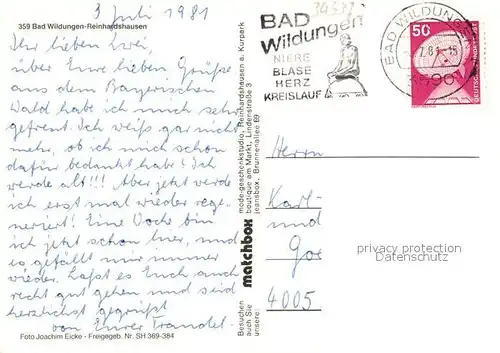 3 Juli 1981
359 Bad Wildungen-Reinhardshausen
Ihr lieben Zwei,
über Eure lieben Grüße
aus dem Bayerischen
Wald habe ich mich sehr
gefreut. Ich weiß gar nicht
mehr, ob ich mich schon
dafür bedankt habe! Ich
werde alt!!! Aber jetzt werde
ich erst mal wieder rege-
neriert! Eine Woche bin
ich jetzt schon hier, und
es gefällt mir immer
wieder. Laßt es Euch auch
recht gut gehen und seid
herzlichst gegrüßt
von Eurer Traudel
Foto Joachim Eicke - Freigegeb. Nr. SH 369-384
Besuchen
auch Sie
unsere:
matchbox
mode-geschenkstudio, Reinhardshausen a. Kurpark
boutique am Markt, Lindenstraße 3
jeansbox, Brunnenallee 69
BAD
Wildungen
NIERE
BLASE
HERZ
KREISLAUF
BAD WILDUNGEN
50
Herrn
Karl-
und
4005
privacy protection
Datenschutz